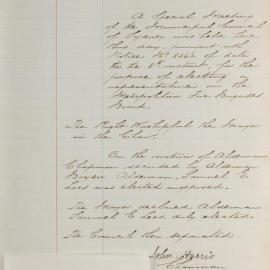 A Special Meeting
of the Municipal Council
of Sydney was held here
this day, pursuant with
Notice No of date
the 8th instant, for the
purpose of electing a
representative on the
Metropolitan Fire Brigades
Board.
The Right Worshipful the Mayor
in the Chair.
On the motion of Alderman
Chapman seconded by Alderman
Alderman Samuel E
Lees was elected unopposed.
The Mayor declared Alderman
Samuel E Lees duly elected
The Council then separated
John Harris
Chairman